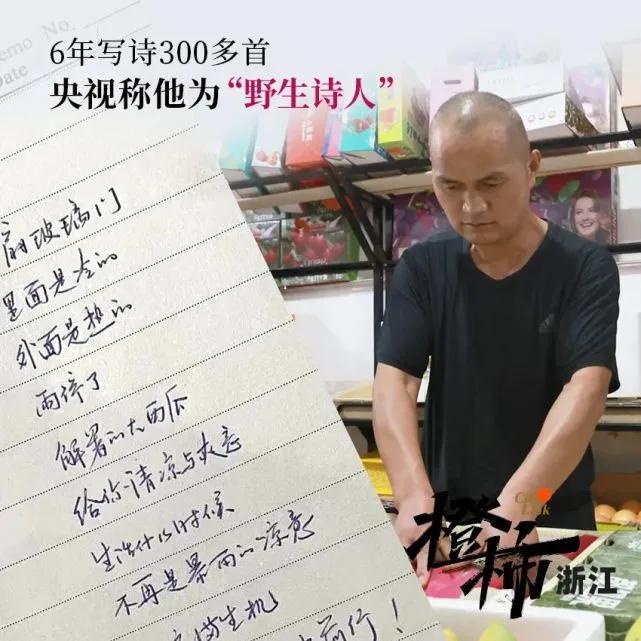 6年写诗300多首
央视称他为“野生诗人”
emo No.
Date
扇玻璃门
里面是冷的
外面是热的
雨停了
解署的大西瓜
给你清凉与快意
生活什么时候
不再是暴雨的凉意
生机
前行！
City Link
橙柿
浙江